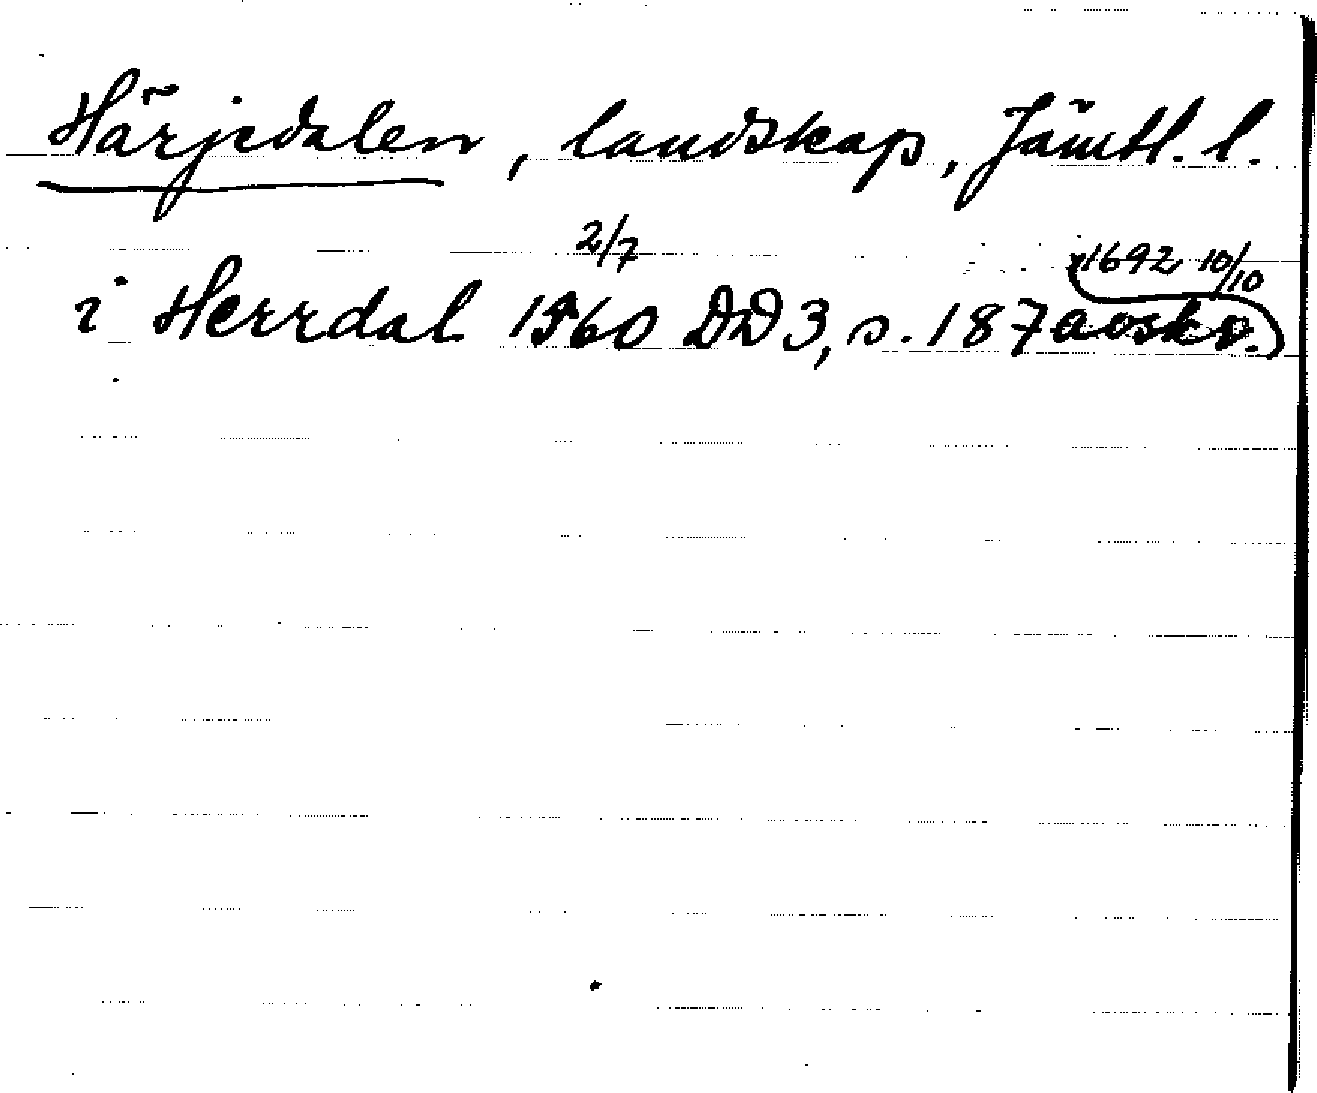 Härjedalen, landskap, Jämtl. l.
2/7 1692 10/10
i Herrdal 1560 DD 3, s. 187 avskr.